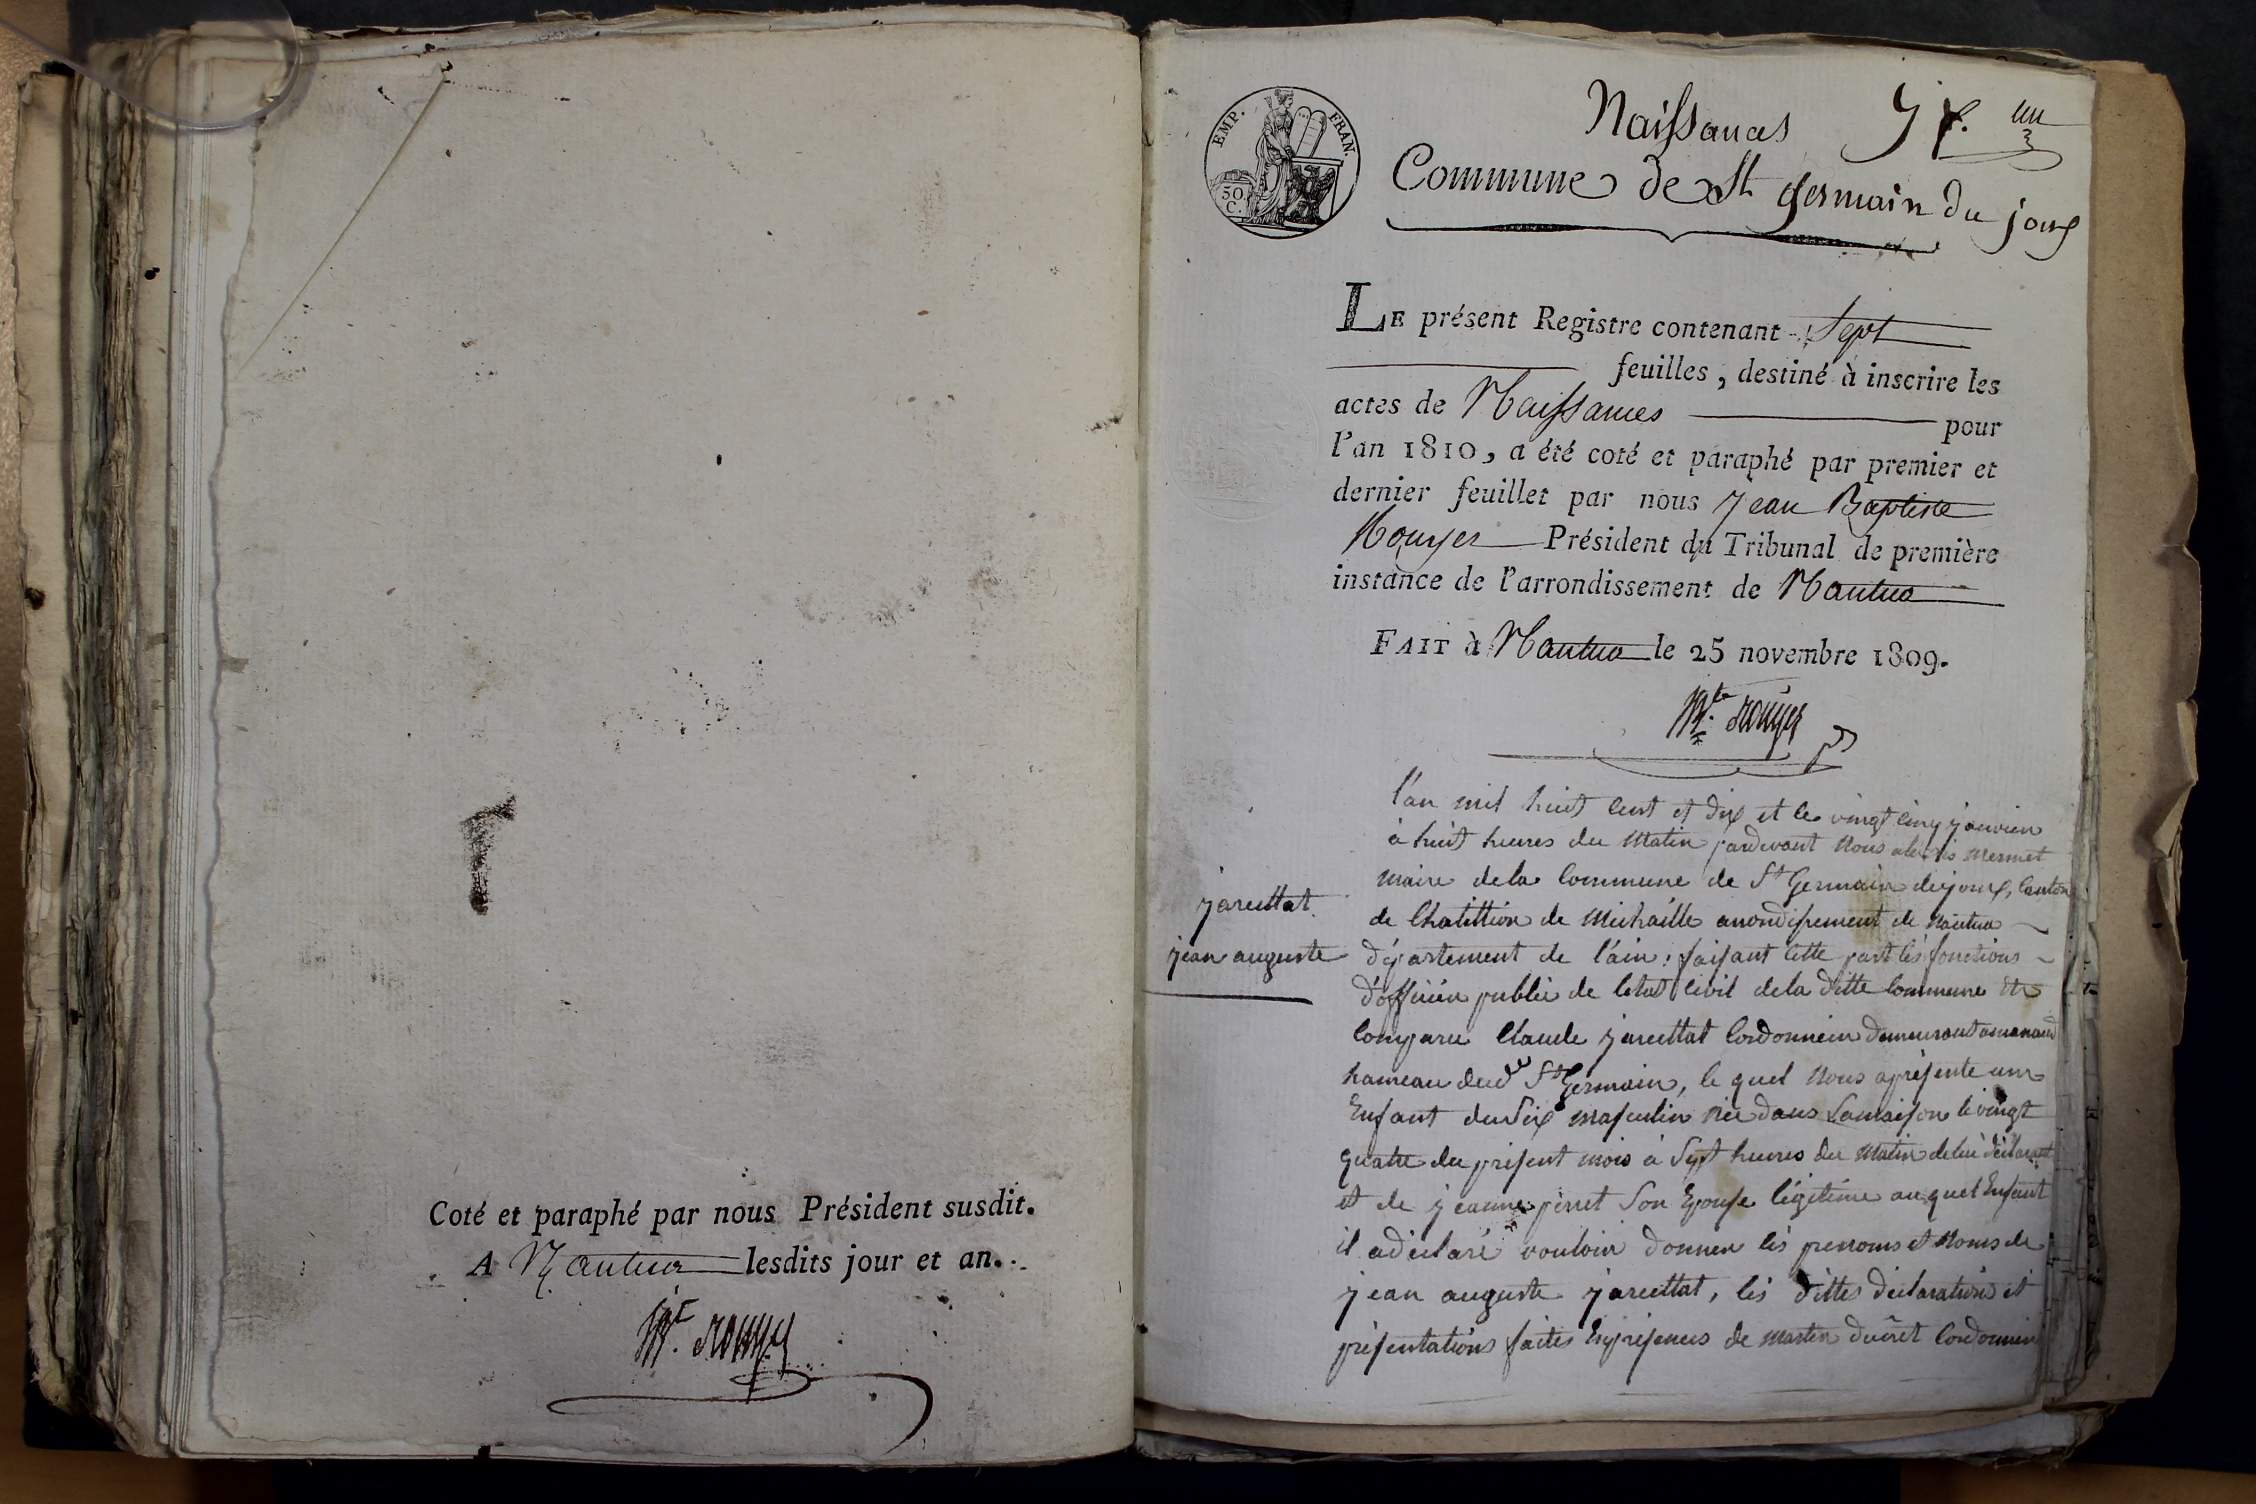 Coté et paraphé par nous Président susdit.
A Nantua lesdits jour et an.
Bte. rouyer
Naissances
un
EMP. FRAN.
50 C.
Commune de St germain du joux
LE présent Registre contenant Sept
feuilles, destiné à inscrire les
actes de Naissances pour
l'an 1810, a été coté et paraphé par premier et
dernier feuillet par nous Jean Baptiste
Rouyer Président du Tribunal de première
instance de l'arrondissement de Nantua
FAIT à Nantua le 25 novembre 1809.
Bte. rouyer
l'an mil huit cent et dix et le vingt cinq janvier
à huit heures du matin pardevant nous alexis mermet
maire dela Commune de St Germain dejoux, Canton
de Chatillion de Michaille arrondissement de nantua
jacuttat
jean auguste
département de l'ain, faisant cette part les fonctions
d'officier public de letat civil dela ditte Commune Est
comparu Claude jacuttat Cordonnier demeurant
hameau dud St Germain, le quel nous apresente un
Enfant du Sex masculin née dans Samaison le vingt
quatre du present mois à Sept heures du Matin delui déclarant
et de jeanne perret Son Epouse légitime auquel Enfant
il adéclaré vouloir donner les prenoms et noms de
jean auguste jacuttat, les dittes déclarations et
présentations faites Enpresences de martin ducret Cordonnier